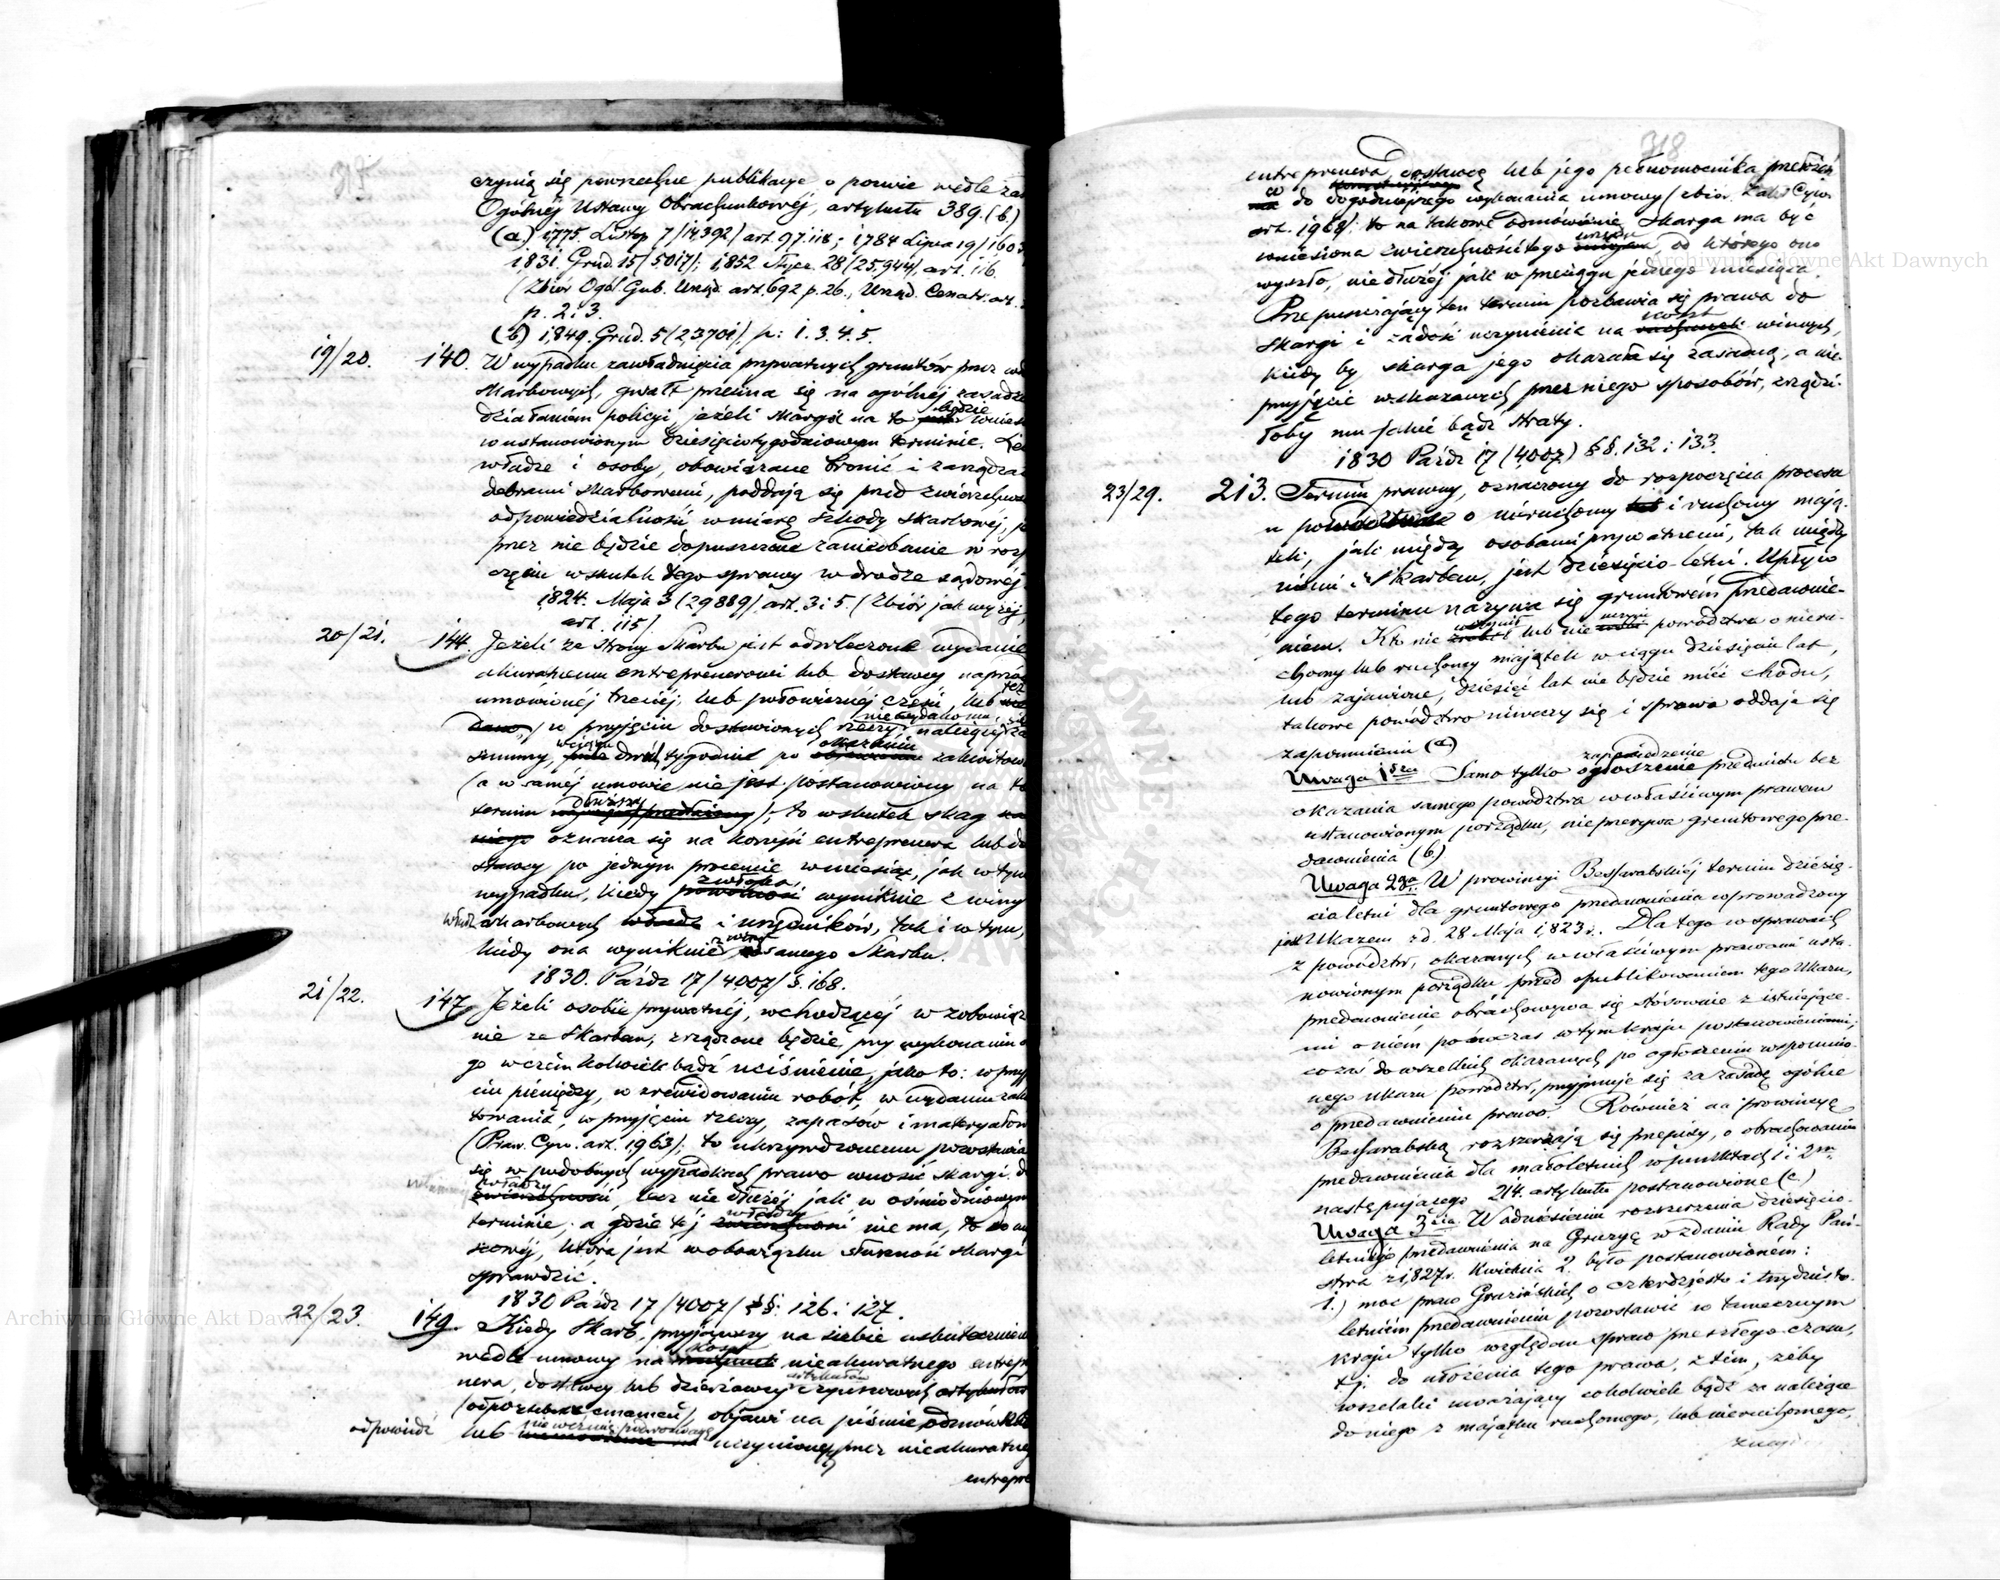 317
czynią się powszechne publikacye, o pozwie wedle zas
Ogólnéj Ustawy Obrachunkowéj, artykułu 389. (b)
(a) 1775 Listop 7 /14,392/ art. 97. 118; 1784 Lipca 19 /1603
1831. Grud. 15 /5017/; 1852 Stycz. 28 (25,944/, art. 116.
(Zbiór Ogól. Gub. Urząd. art. 692 p. 26., Urząd. Centr. art.
p. 2. i 3.
(b) 1,849. Grud. 5 /23701/, p: 1. 3. 4. 5.
19/20. 140. W wypadku zawładnięcia prywatnych gruntów przez wł
skarbowych, gwałt przecina się na ogólnéj zasadzie
będzie
działaniem policyi jeżeli skarga na to wniesi
w ustanowionym dziesięciotygodniowym terminie.
władze i osoby, obowiązane bronić i zarządzać
dobrami skarbowemi, poddają się pod zwierzchni
odpowiedzialność w miarę szkody skarbowéj, je
przez nie będzie dopuszczone zaniedbanie w rozp
częciu wskutek tego sprawy w drodze sądowéj.
1,824. Maja 3 (29889/ art. 3 i 5. (Zbiór jak wyżéj,
art. 115/.
20/21. 144. Jeżeli ze strony Skarbu jest odwleczone wydanie
akuratnemu entreprenerowi lub dostawcy naprzód
też
umówionéj trzeciéj, lub połowicznéj części, lub
niewydano mu
w przyjęciu dostawionych rzeczy, należącéj za
wciągu okazaniu
summy, dwóch tygodni po zakwitow
(a w saméj umowie nie jest postanowiony na to
dłuższy
termin); to wskutek skarg
oznacza się na korzyść entreprenera lub do
stawcy po jednym procencie w miesiąc, jak w tym
zwłoka
wypadku, kiedy wyniknie z winy
władz skarbowych i urzędników, tak i w tym,
z winy
kiedy ona wyniknie samego Skarbu.
1830. Paźdz 17 /4007/ §. 168.
21/22. 147. Jeżeli osobie prywatnéj, wchodzącéj w zobowiąz
nie ze Skarbem, zrządzone będzie, przy wykonaniu
go w czémkolwiek bądź uciśnienie, jako to: w przyj
ciu pieniędzy, w zrewidowaniu robót, w wydaniu zakwi
towania, w przyjęciu rzeczy, zapasów i materyałów
(Praw. Cyw. art. 1,963); to ukrzywdzonemu pozostawia
się w podobnych wypadkach prawo wnosić skargi d
władzy
zwierzchności, lecz nie dłużéj jak w ośmiodniowym
władzy
terminie; a gdzie téj zwierzchności nie ma, to do
scowéj, która jest w obowiązku słuszność skargi
sprawdzić.
1830 Paźdz 17 /4007/ §§: 126 i 127.
22/23. 149. Kiedy Skarb, przyjąwszy na siebie uskutecznien
koszt
wedle umowy na rachunek nieakuratnego entrepre
artykułów
nera, dostawcy lub dzierżawcy czynszowych artykułów
(odpornych znamień), objawi na piśmie odmówienie
nie weźmie pod rozwagę
odpowiedź lub uczynionéj przez nieakuratnego
entrepre
318
entreprenera, dostawcę lub jego pełnomocnika przełożeń
co
do dogodniejszego wykonania umowy (zbiór. Zak. Cyw.
art. 1968/: to na takowe odmówienie, Skarga ma być
urzędu
wniesiona zwierzchności tego, od którego ono
wyszło, nie dłużéj jak w przeciągu jednego miesiąca.
Przepuszczający ten termin pozbawia się prawa do
koszt
skargi i zadość uczynienia na rachunek winnych,
kiedy by skarga jego okazała się zasadną, a nie-
przyjęcie wskazanych przez niego sposobów, zrządzi-
łoby mu jakié bądź straty.
1830 Paźdz 17 (4,007) §§. 132 i 133.
23/29. 213. Termin prawny, oznaczony do rozpoczęcia procesu
o nieruchomy i ruchomy mają-
tek, jak między osobami prywatnemi, tak między
niemi i Skarbem, jest dziesięcio-letni. Upływ
tego terminu nazywa się gruntowém przedawnie-
uczyni
niem. Kto nie lub nie powództwa o nieru-
chomy lub ruchomy majątek w ciągu dziesięciu lat,
lub zajawione, dziesięć lat nie będzie mieć chodu,
takowe powództwo niweczy się i sprawa oddaje się
zapomnieniu (a)
zapowiedzenie
Uwaga 1sza. Samo tylko ogłoszenie przedmiotu bez
okazania samego powództwa w właściwym prawem
ustanowionym porządku, nieprzerywa gruntowego prze-
dawnienia (b)
Uwaga 2ga. W prowincyi Bessarabskiéj termin dziesię-
cioletni dla gruntowego przedawnienia wprowadzony
jest Ukazem z d. 28 Maja 1,823 r. Dla tego w sprawach
z powództw, okazanych w właściwym prawami usta-
nowionym porządku przed opublikowaniem tego Ukazu,
przedawnienie obrachowywa się stósownie z istniejące-
mi o niém pówczas w tym kraju postanowieniami;
co zaś do wszelkich okazanych po ogłoszeniu wspomnio-
nego ukazu powództw, przyjmuje się za zasadę ogólne
o przedawnieniu prawo. Również na prowincyę
Bessarabską rozszerzają się przepisy, o obrachowaniu
przedawnienia dla małoletnich w punktach 1 i 2m
następującego 214. artykułu postanowione (c)
Uwaga 3cia. W odniesieniu rozszerzenia dziesięcio-
letniego przedawnienia na Gruzyę w zdaniu Rady Pań-
stwa z 1,827 r. Kwietnia 2. było postanowioném:
1.) moc praw Gruzińskich o czterdziesto i trzydzisto-
letniém przedawnieniu pozostawić w tamecznym
kraju tylko względem spraw przeszłego czasu,
t. j. do ułożenia tego prawa, z tém, żeby
wszelaki uważający cokolwiek bądź za należące
do niego z majątku ruchomego, lub nieruchomego,